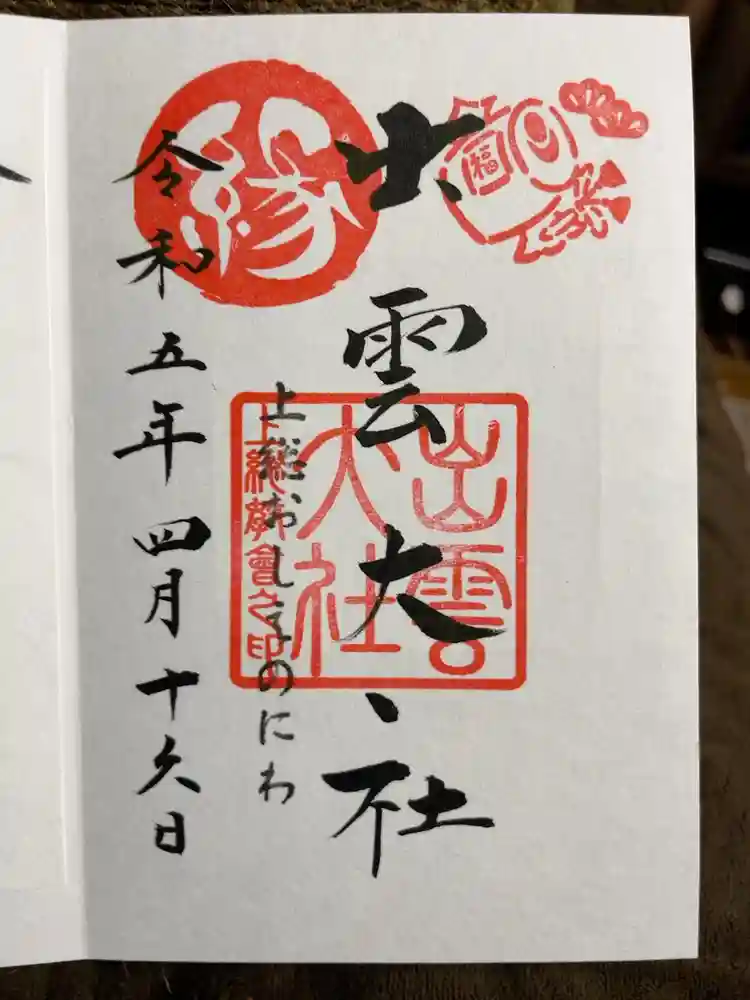 福
出雲大社
縁
出雲
大社
上総教會之印
上総おしえのにわ
令和五年四月十六日